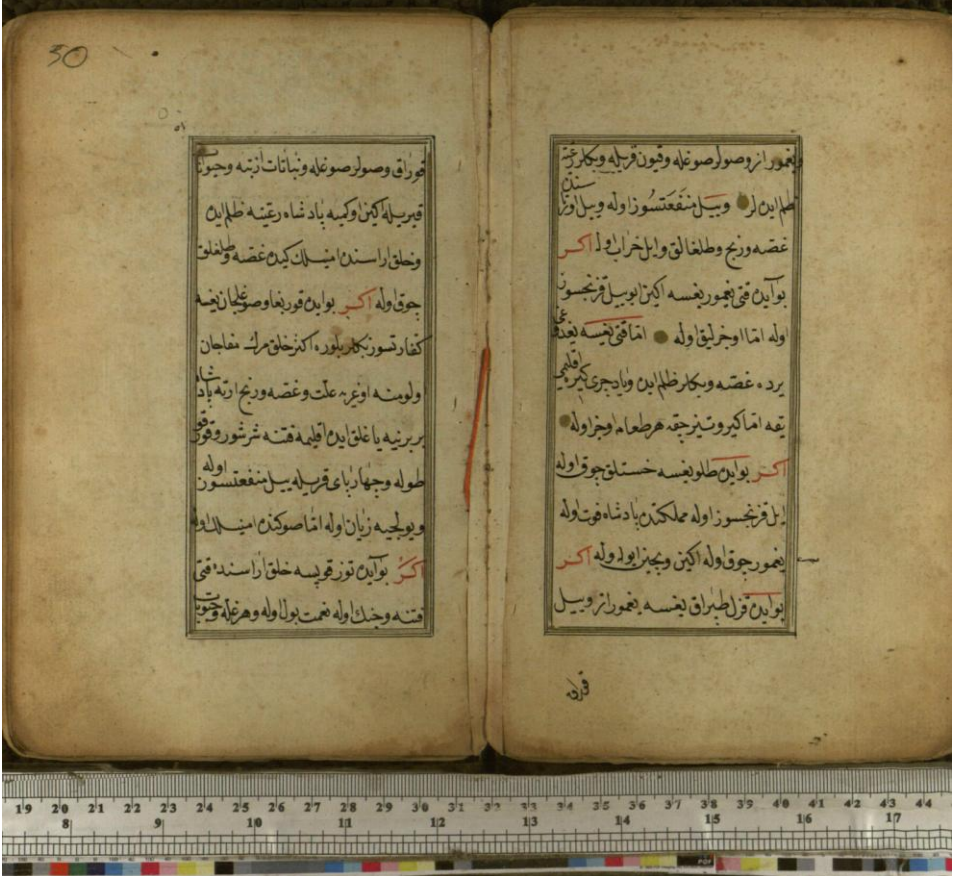 یغمور از وصولر صوغله وقیون قریله وبکلر رعیته
ظلم ایده لر وییل منفعتسوز اوله وییل اوزر سنده
غصه ورنج وطلغالق وایل خراب اوله اکر
بو آیده قتی یغمور یغسه اکین ایو ییل قزنجسوز
اوله اما اوجزلیق اوله اما قتی یغسه یغدوغی
یرده غصه وبکلر ظلم ایده وباد جری کیر اقلیمی
یقه اما کیرو تیز چقه هر طعام اوجز اوله
اکر بو ایده طلو یغسه خستلق چوق اوله
ایل قزنجسوز اوله مملکتده پادشاه فوت اوله
یغمور چوق اوله اکین وبچین ایو اوله اکر
بو ایده قزل طپراق یغسه یغمور از وییل
قوراق
30
قوراق وصولر صوغله ونباتات ازتبه وحیوانات
قیریله اکین اوکمیه پادشاه رعیته ظلم ایده
وخلق اراسنده امنیلک کیده غصه وطلغلق
چوق اوله اکر بو ایده قوربغا وصوغلجان یغسه
کفار تسوز بکلر بلوره اکثر خلق مرک مفاجان
ولومنه اوغریه علت وغصه ورنج ارته پادشاه
بربرنیه یاغلق ایده اقلیمه فتنه شر شور وقورقو
طوله وچهارپای قریله ییل منفعتسون اوله
ویولجیه زیان اوله اما صوکنده امنیلک اوله
اکر بو آیده توز قوپسه خلق اراسنده قتی
فتنه وجنک اوله نعمت بول اوله وهر غله وحبوبات
19 20 21 22 23 24 25 26 27 28 29 30 31 32 33 34 35 36 37 38 39 40 41 42 43 44
8 9 10 11 12 13 14 15 16 17